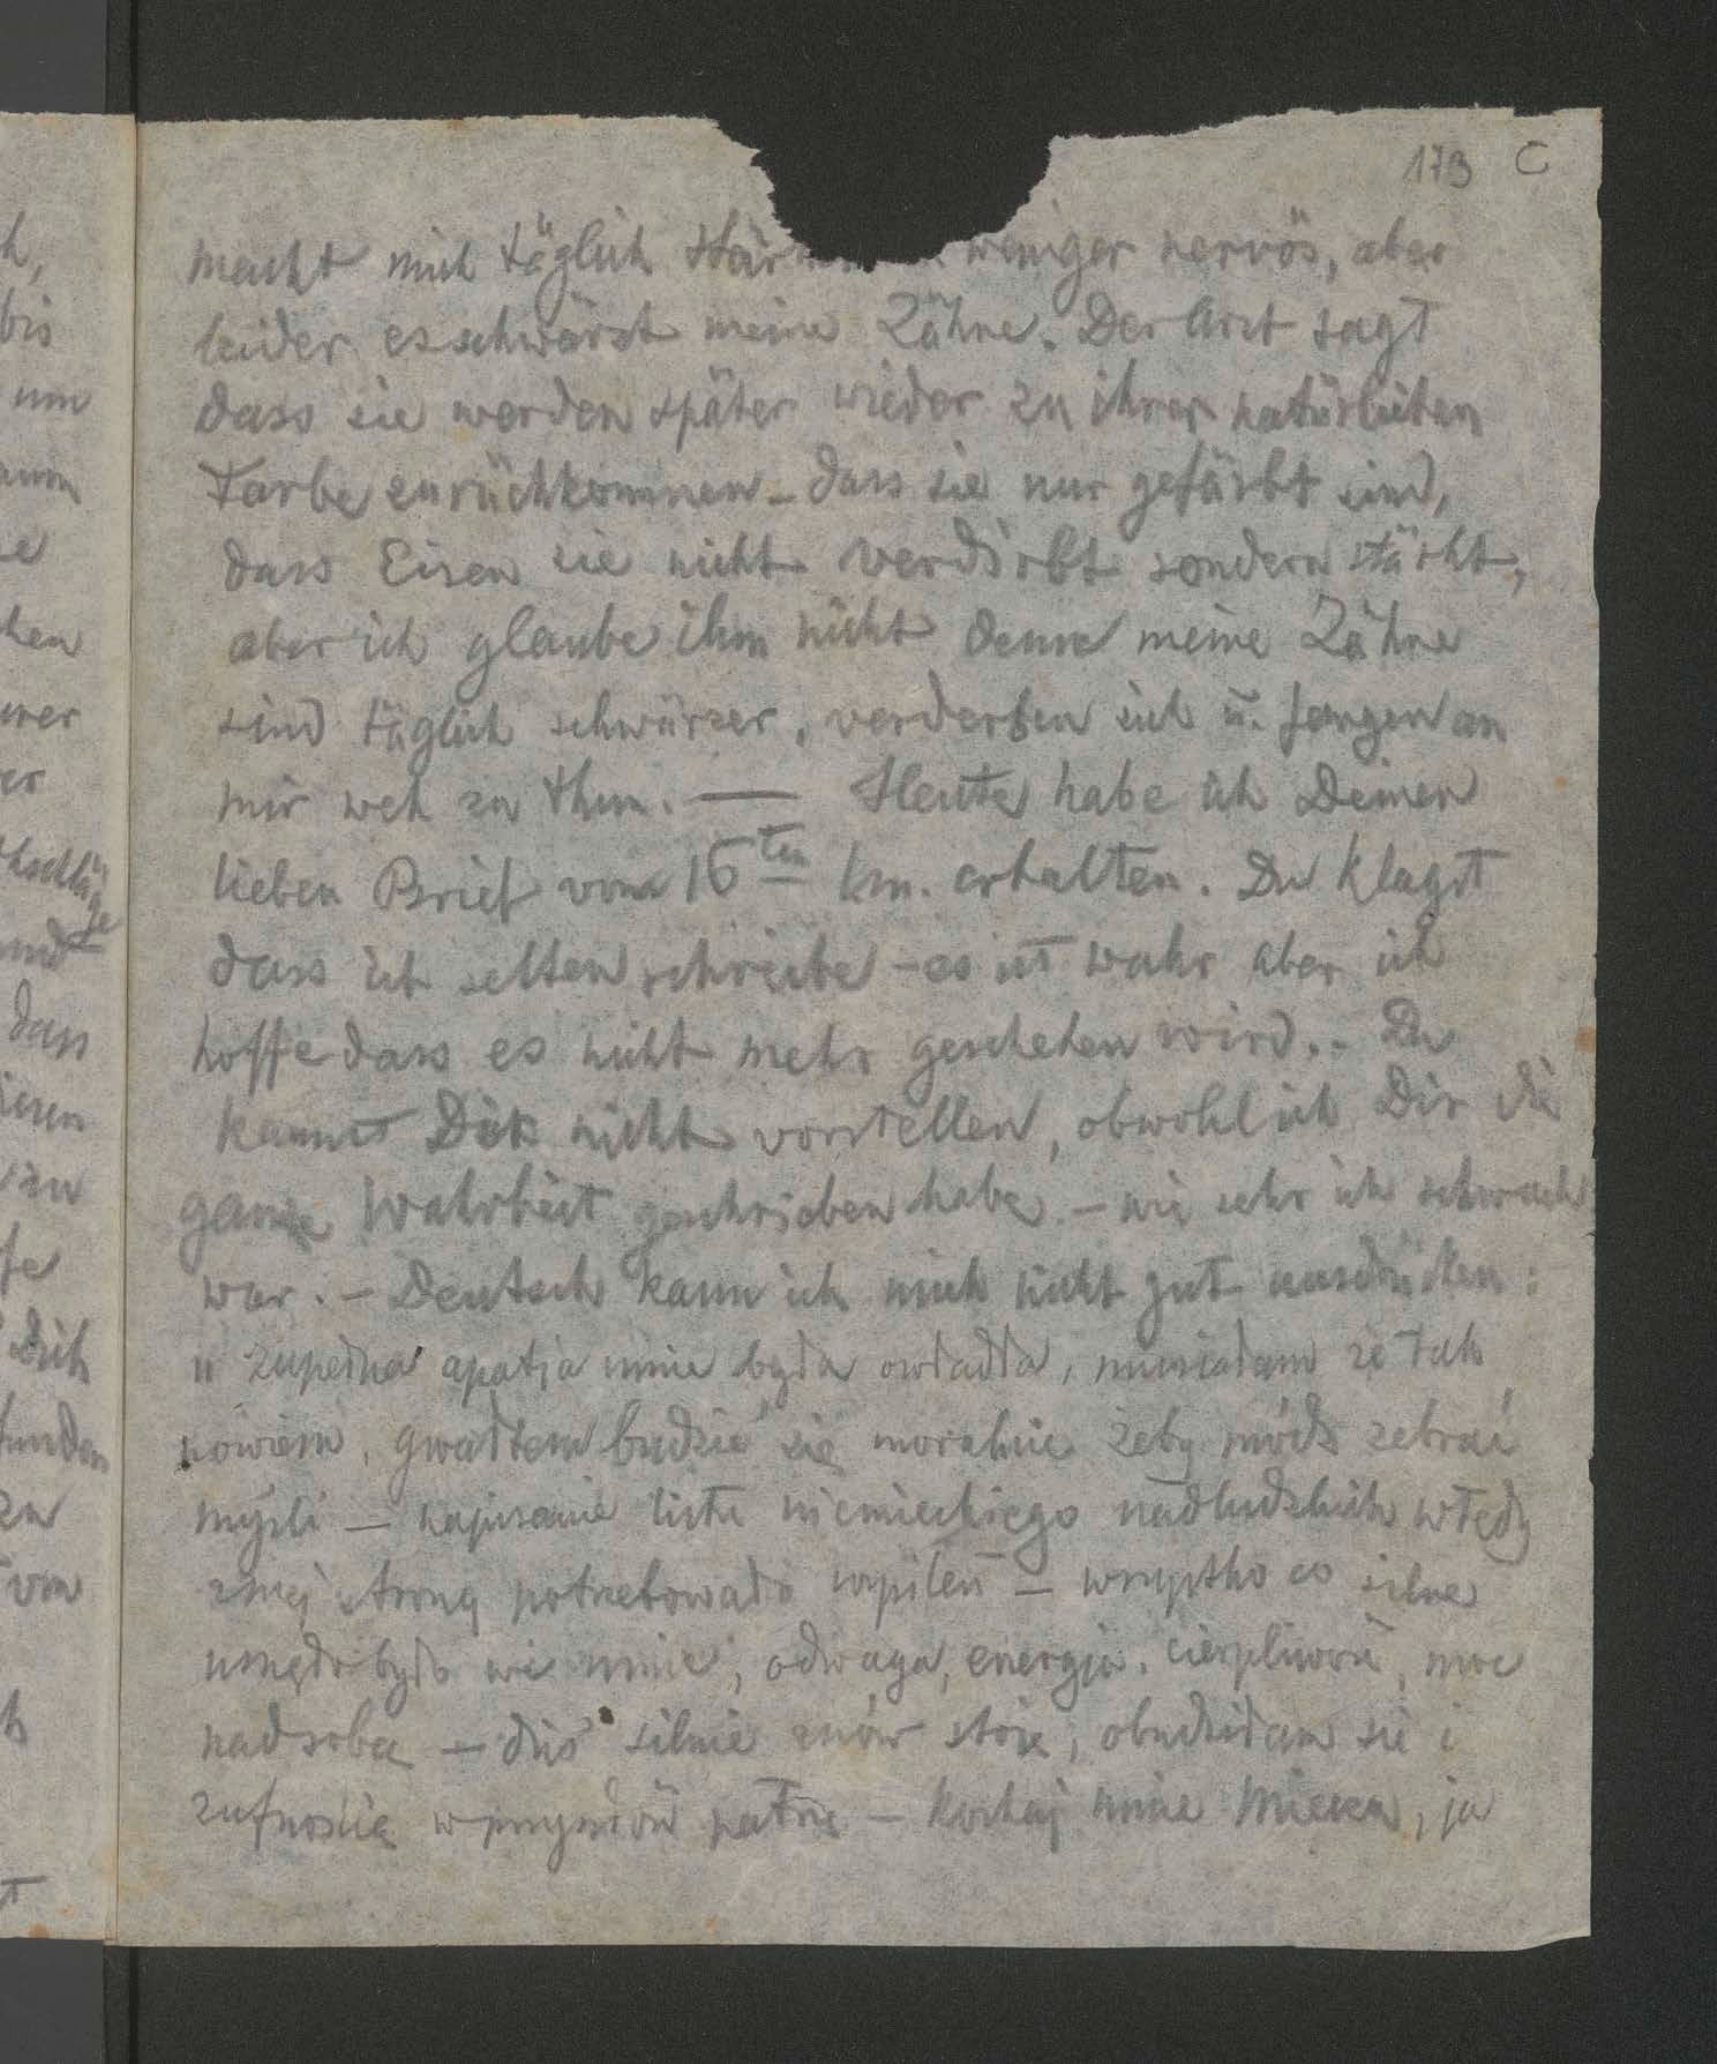 173 C
macht mich täglich weniger nervös, aber
leider es schwärzt meine Zähne. Der Arzt sagt
dass sie werden später wieder zu ihrer natürlichen
Farbe zurückkommen – dass sie nur gefärbt sind,
dass Eisen sie nicht verdirbt sondern stärkt,
aber ich glaube ihm nicht denn meine Zähne
sind täglich schwärzer, verderben sich u. fangen an
mir weh zu thun. — Heute habe ich Deinen
lieben Brief vom 16ten erhalten. Du klagst
dass ich selten schreibe – es ist wahr aber ich
hoffe dass es nicht mehr geschehen wird. – Du
kannst Dich nicht vorstellen, obwohl ich Dir die
ganze Wahrheit geschrieben habe – wie sehr ich schwach
war. – Deutsch kann ich mich nicht gut ausdrücken:
zupełna apatja mnie była owładła, musiałam że tak
powiem, gwałtem budzić się moralnie żeby módz zebrać
myśli – napisanie listu niemieckiego nadludzkich wtedy
z mej strony potrzebowało wysileń – wszystko co silne
było we mnie, odwaga, energja, cierpliwość, moc
nad sobą – dziś silnie znów stoję, obudziłam się i
z ufnością w przyszłość patrzę – kochaj mnie, ja